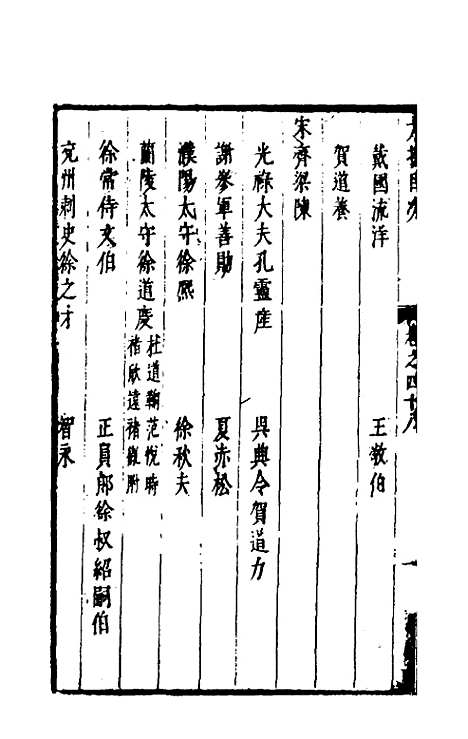 戴國流洋　王敬伯
賀道養
宋齊梁陳
光祿大夫孔靈產　吳典令賀道力
謝叅軍善勛　夏赤松
濮陽太守徐熙　徐秋夫
蘭陵太守徐道度　杜道鞠范悅時
褚欣遠褚徽附
徐常侍文伯　正員郎徐叔紹嗣伯
兗州刺史徐之才　智永
卷之四十八
一